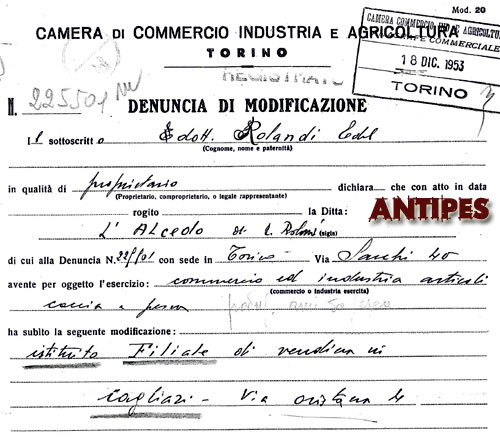 Mod. 20
CAMERA DI COMMERCIO INDUSTRIA E AGRICOLTURA
TORINO
CAMERA COMMERCIO IND. E AGRICOLTUR
E COMMERCIALE
18 DIC. 1953
TORINO
REGISTRATO
N. 225501
DENUNCIA DI MODIFICAZIONE
Il sottoscritto dott. Rolandi
(Cognome, nome e paternità)
in qualità di proprietario dichiara che con atto in data
(Proprietario, comproprietario, o legale rappresentante)
rogito la Ditta:
ANTIPES
L' Alcedo di
(sigla)
di cui alla Denuncia N. con sede in Torino Via Sacchi 40
avente per oggetto l'esercizio: commercio ed industria articoli
(commercio o industria esercita)
caccia e pesca
ha subito la seguente modificazione:
istituito Filiale di vendita in
Cagliari - Via